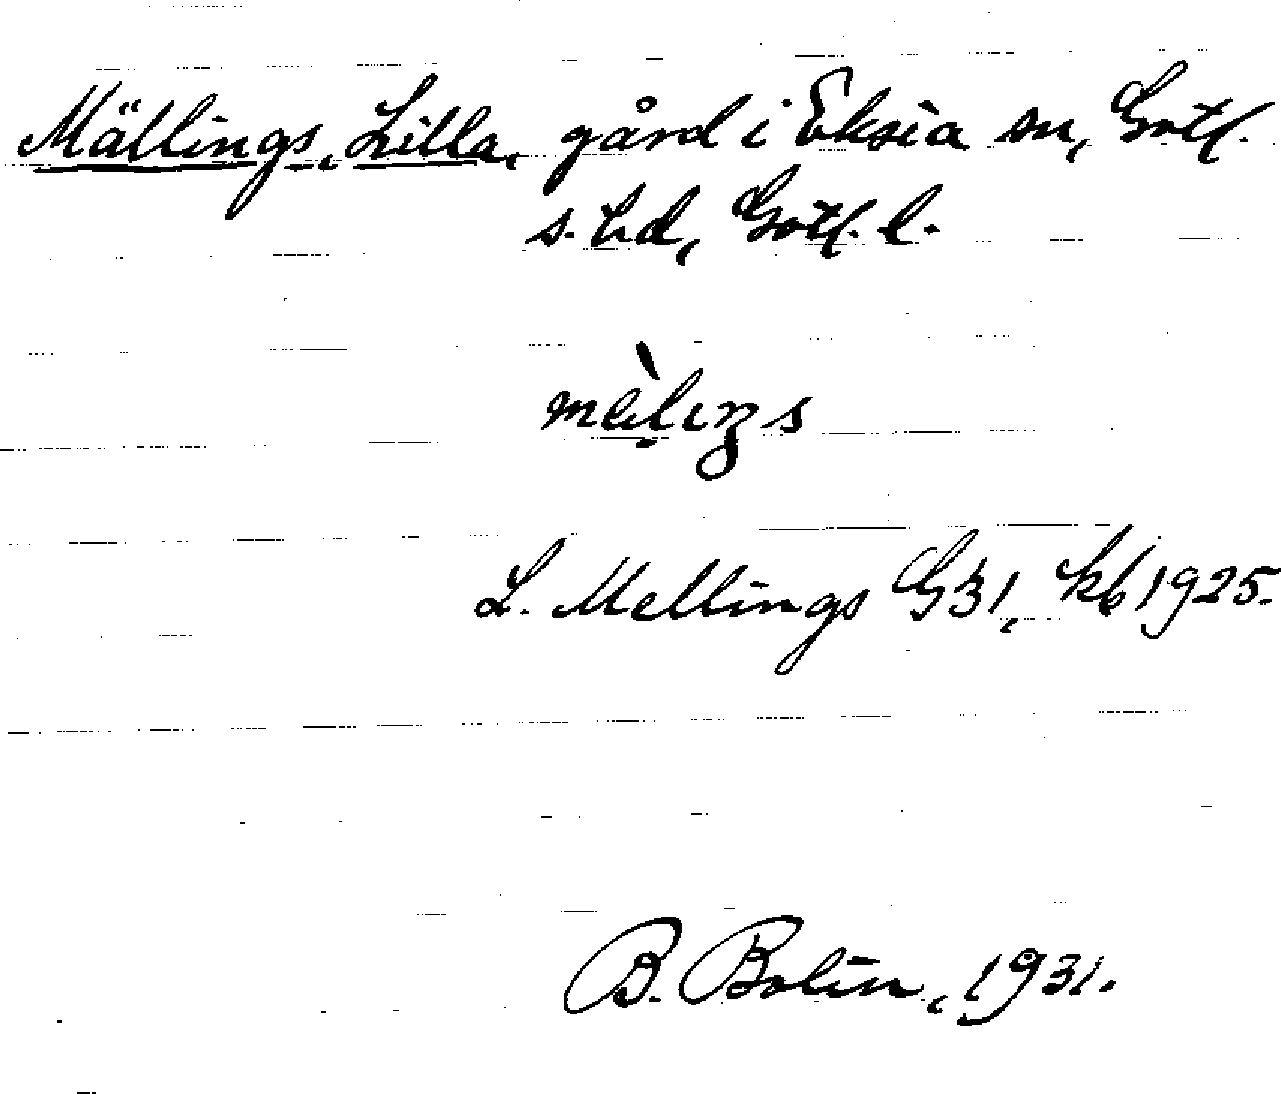 Mällings, Lilla, gård i Eksta sn, Gotl.
s. hd, Gotl. l.
L. Mellings G31, kb 1925.
B. Bolin, 1931.